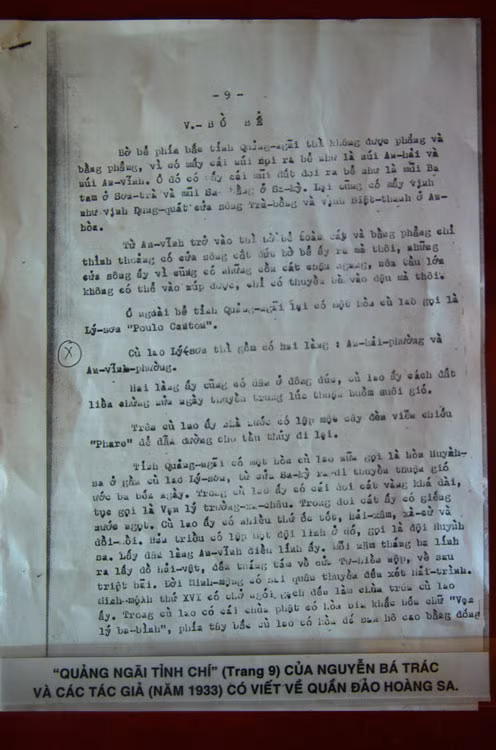 - 9 -
V.- BỜ BỂ
Bờ bể phía bắc tỉnh Quảng-ngãi thì không được phẳng và
bằng phẳng, vì có mấy cái núi ra bể như là núi An-hải và
núi An-vĩnh. Ở đó có mấy cái mũi đất dọi ra bể như là mũi Ba
tam ở Sơn-trà và mũi Ba ở Sa-kỳ. Lại cũng có mấy vịnh
như vịnh Dung-quất cửa sông Trà-bồng và vịnh Việt-thanh ở An-
hòa.
Từ An-vĩnh trở vào thì bờ bể toàn cát và bằng phẳng chỉ
thỉnh thoảng có cửa sông cắt đứt bờ bể ấy ra mà thôi, những
cửa sông ấy vì cũng có những cồn cát ngang, nên tàu lớn
không có thể vào núp được, chỉ có thuyền bè vào đậu mà thôi.
Ở ngoài bể tỉnh Quảng-ngãi lại có một hòn cù lao gọi là
Lý-sơn "Poulo Canton".
Cù lao Lý-sơn thì gồm có hai làng : An-hải-phường và
An-vĩnh-phường.
Hai làng ấy cũng có dân ở đông đúc, cù lao ấy cách đất
liền chừng nửa ngày thuyền trong lúc thuận buồm xuôi gió.
Trên cù lao ấy nhà nước có lập một cây đèn viễn chiếu
"Phare" để dẫn đường cho tàu thủy đi lại.
Tỉnh Quảng-ngãi có một hòn cù lao nữa gọi là hòn Huỳnh-
sa ở gần cù lao Lý-sơn, từ cửa Sa-kỳ ra đi thuyền thuận gió
ước ba bốn ngày. Trong cù lao ấy có cái đoi cát vàng khá dài,
tục gọi là Vạn lý trường-sa-châu. Trong đoi cát ấy có giếng
nước ngọt. Cù lao ấy có nhiều thứ ốc tốt, hải-sâm, xà-cừ và
đồi-mồi. Hồi triều có lập một đội lính ở đó, gọi là đội Huỳnh
sa. Lấy dân làng An-vĩnh điền lính ấy. Mỗi năm tháng ba lính
ra lấy đồ hải-vật, đến tháng tám về cửa Tư-hiền nộp, về sau
triệt bãi. Đời Minh-mạng có sai quân thuyền đến xét hải-trình.
Minh-mệnh thứ XVI có chở ngói gạch đến làm chùa trên cù lao
ấy. Trong cù lao có cái chùa phật có hòn bia khắc bốn chữ "Vạn
lý ba-bình", phía tây bắc cù lao có hòn đá san hô cao bằng đồng
"QUẢNG NGÃI TỈNH CHÍ" (Trang 9) CỦA NGUYỄN BÁ TRÁC
VÀ CÁC TÁC GIẢ (NĂM 1933) CÓ VIẾT VỀ QUẦN ĐẢO HOÀNG SA.